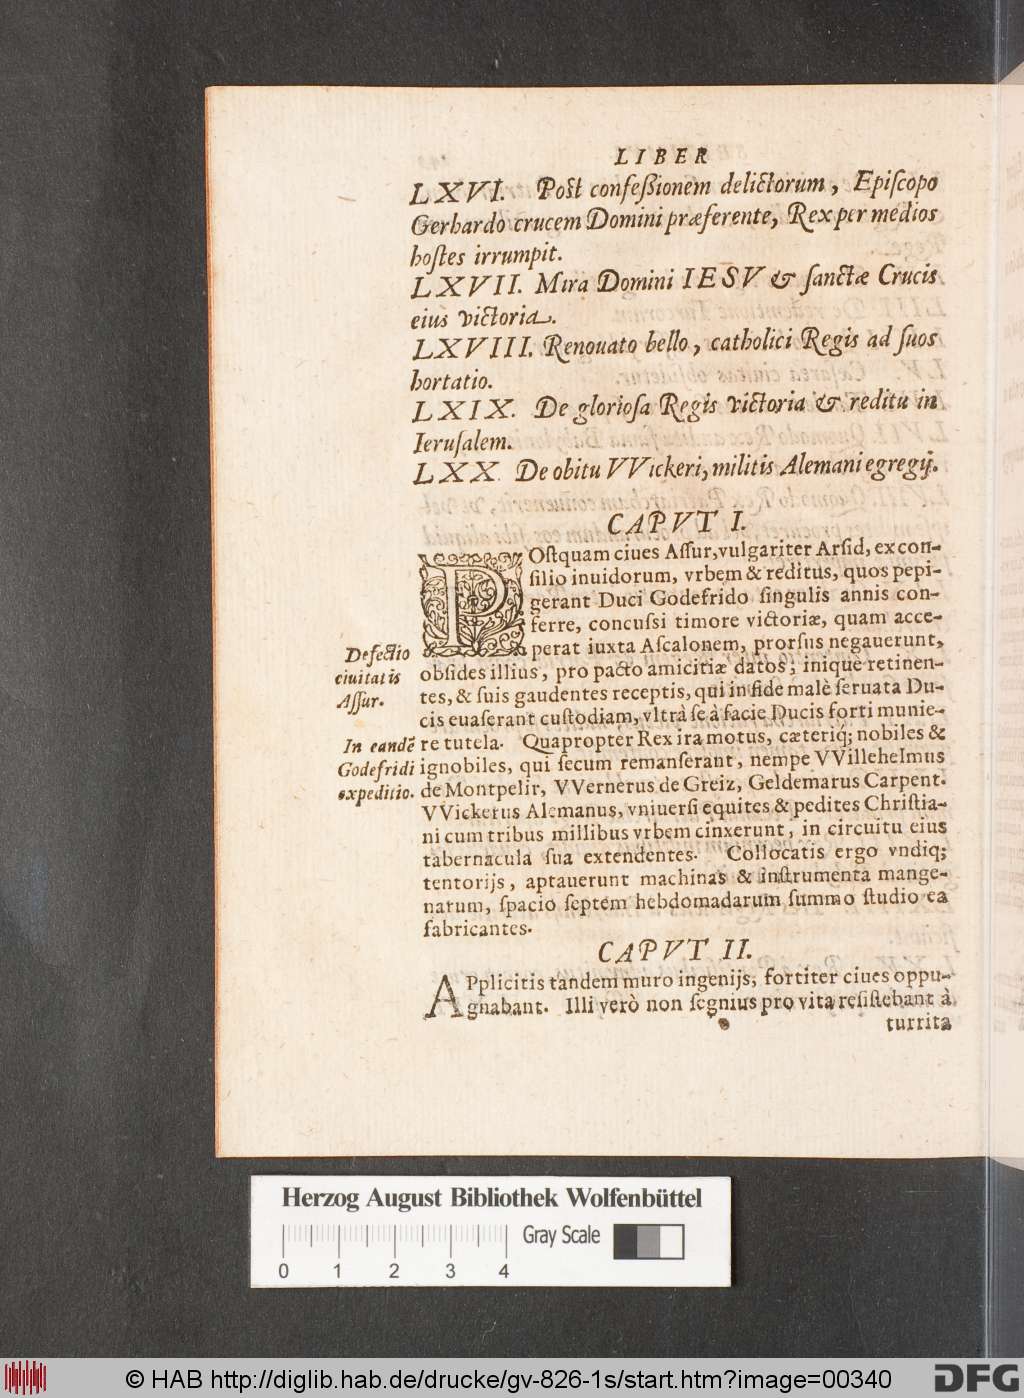 LIBER
LXVI. Poſt confeßionem delictorum, Epiſcopo
Gerhardo crucem Domini præferente, Rex per medios
hoſtes irrumpit.
LXVII. Mira Domini IESV & ſanctæ Crucis
eius victoria.
LXVIII. Renouato bello, catholici Regis ad ſuos
hortatio.
LXIX. De glorioſa Regis victoria & reditu in
Ieruſalem.
LXX. De obitu VVickeri, militis Alemani egregij.
CAPVT I.
POſtquam ciues Aſſur, vulgariter Arſid, ex con-
ſilio inuidorum, vrbem & reditus, quos pepi-
gerant Duci Godefrido ſingulis annis con-
ferre, concuſsi timore victoriæ, quam acce-
perat iuxta Aſcalonem, prorſus negauerunt,
obſides illius, pro pacto amicitiæ datos, iniquè retinen-
tes, & ſuis gaudentes receptis, qui in fide malè ſeruata Du-
cis euaſerant cuſtodiam, vltrà ſe à facie Ducis forti munie-
re tutela. Quapropter Rex ira motus, cæteriq́; nobiles &
ignobiles, qui ſecum remanſerant, nempe VVillehelmus
de Montpelir, VVernerus de Greiz, Geldemarus Carpent.
VVickerus Alemanus, vniuerſi equites & pedites Chriſtia-
ni cum tribus millibus vrbem cinxerunt, in circuitu eius
tabernacula ſua extendentes. Collocatis ergo vndiq;
tentorijs, aptauerunt machinas & inſtrumenta mange-
narum, ſpacio ſeptem hebdomadarum ſummo ſtudio ea
fabricantes.
Defectio
ciuitatis
Aſſur.
In eandẽ
Godefridi
expeditio.
CAPVT II.
APplicitis tandem muro ingenijs, fortiter ciues oppu-
gnabant. Illi verò non ſegnius pro vita reſiſtebant à
turrita
Herzog August Bibliothek Wolfenbüttel
0 1 2 3 4
Gray Scale
© HAB http://diglib.hab.de/drucke/gv-826-1s/start.htm?image=00340
DFG